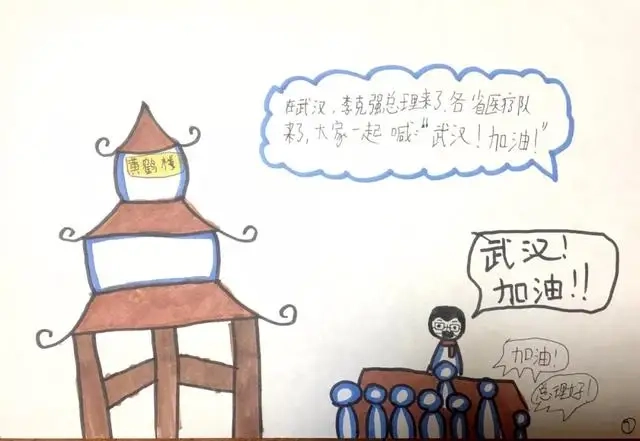 在武汉,李克强总理来了,各省医疗队
来了,大家一起喊:“武汉!加油!”
黄鹤楼
武汉!
加油!!
加油!
总理好!